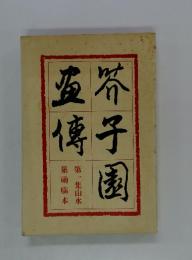 芥子園
畫傳
第一集山水
巢勛臨本